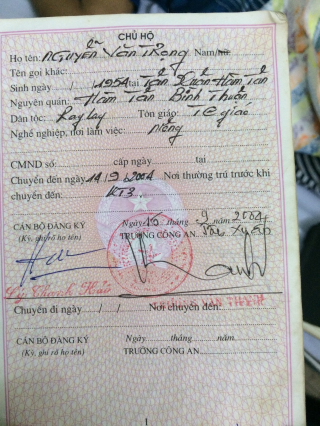 CHỦ HỘ
Họ tên: Nguyễn Văn Trọng Nam/nữ
Tên gọi khác:
Sinh ngày / / 1954 tại Tân Xuân Hàm Tân
Nguyên quán: Hàm Tân Bình Thuận
Dân tộc: Raylay Tôn giáo:
Nghề nghiệp, nơi làm việc: Nông
CMND số: cấp ngày tại
Chuyển đến ngày 14/9/2004 Nơi thường trú trước khi
chuyển đến: KT3
Ngày 10 tháng 9 năm 2004
CÁN BỘ ĐĂNG KÝ TRƯỞNG CÔNG AN
(Ký, ghi rõ họ tên)
Lý Thanh Hải
Chuyển đi ngày / / Nơi chuyển đến:
Ngày tháng năm
CÁN BỘ ĐĂNG KÝ TRƯỞNG CÔNG AN
(Ký, ghi rõ họ tên)